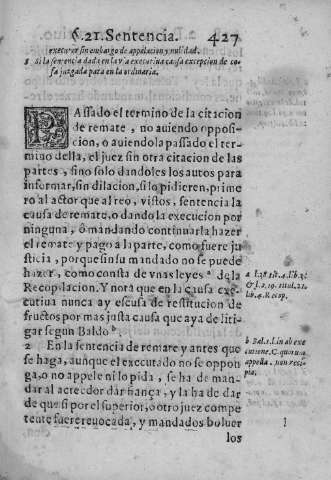 §.21.Sentencia. 427
executar sin embargo de appelacion y nulidad.
5 Si la sentencia dada en la via executiua causa excepcion de co-
sa juzgada para en la ordinaria.
PAssado el termino de la citacion
de remate, no auiendo opposi-
cion, o auiendola passado el ter-
mino della, el juez sin otra citacion de las
partes, sino solo dandoles los autos para
informar, sin dilacion, si lo pidieren, prime
ro al actor que al reo, vistos, sentencia la
causa de remate, o dando la execucion por
ninguna, ô mandando continuarla hazer
el remate y pago a la parte, como fuere ju
sticia, porque sin su mandado no se puede
hazer, como consta de vnas leyes a de la
Recopilacion. Y nota que en la causa exe-
cutiua nunca ay escusa de restitucion de
fructos por mas justa causa que aya de liti-
gar segun Baldo b.
2 En la sentencia de remare y antes que
se haga, aunque el executado no se oppon
ga, o no appele ni lo pida, se ha de man-
dar al acreedor dar fiança, y la ha de dar
de que si por el superior, o otro juez compe
tente fuere reuocada, y mandados boluer
los
a l. 18 tit. 4. lib. 3.
& l. 2. 19. titul. 21.
lib. 4. Recop.
b Bal. 2. l. in ab exe
cutione, C. quorum
appella. non reci-
pia.